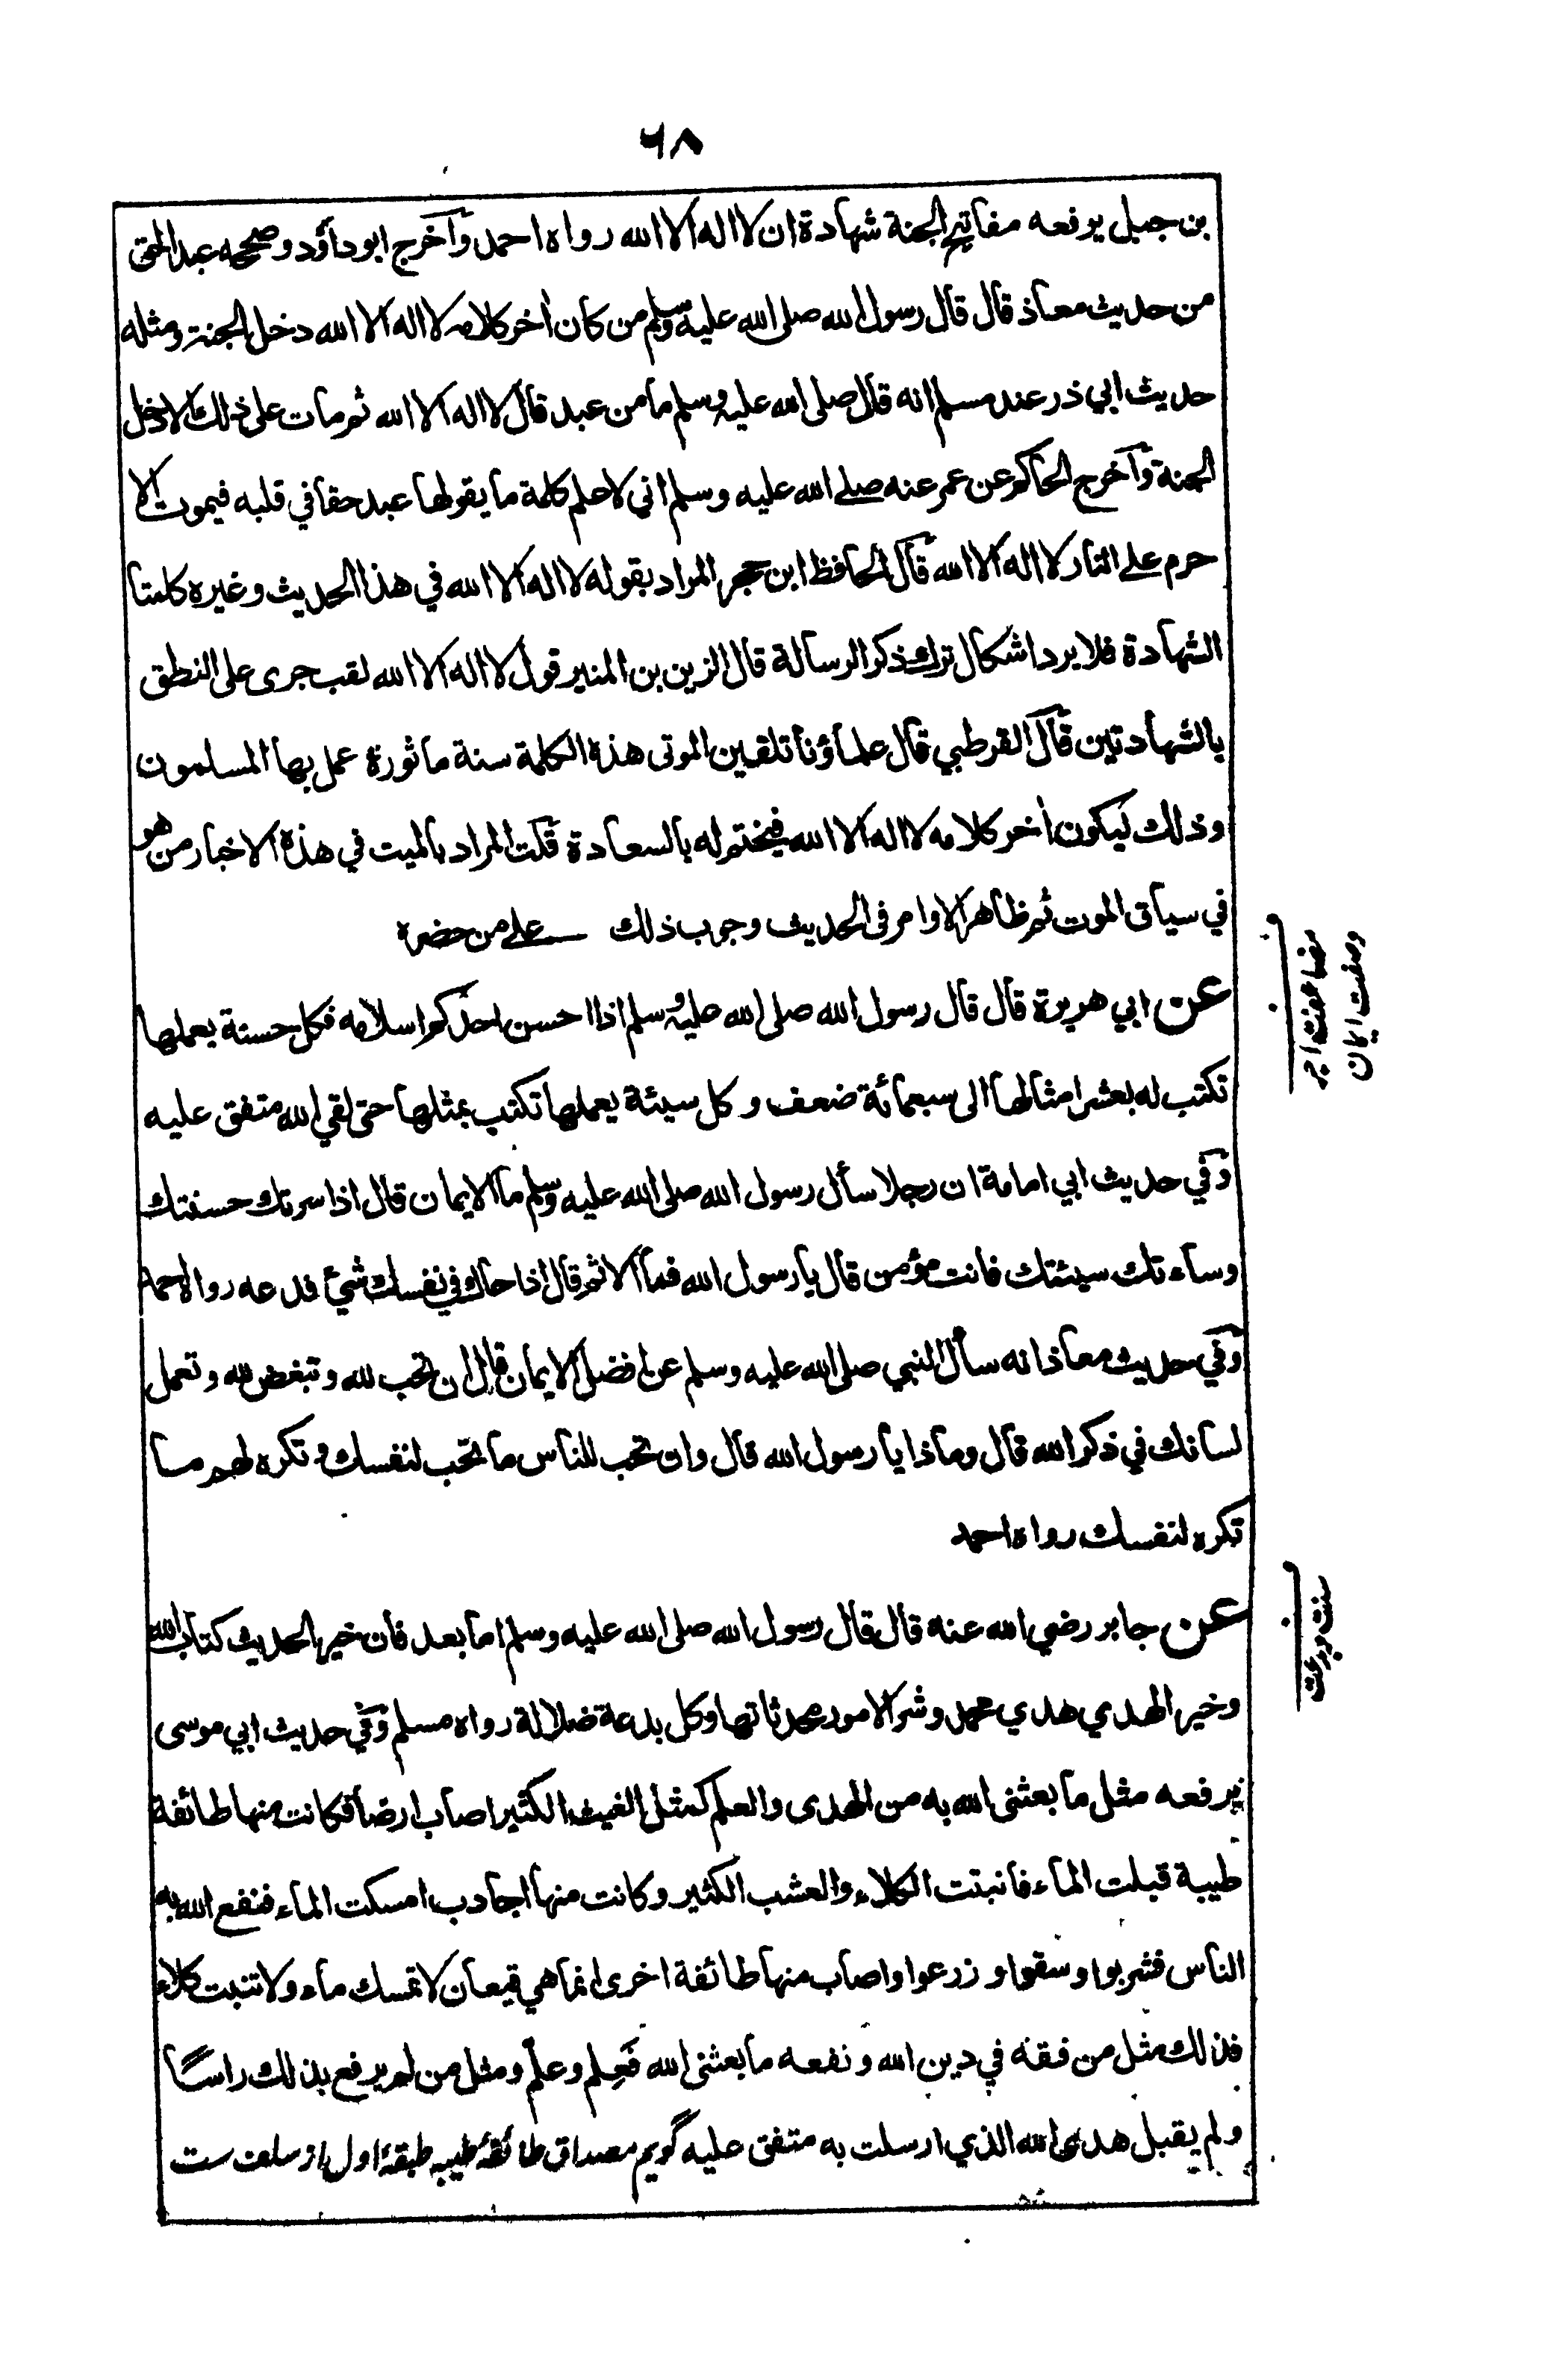 ٦٨
بن جبل يرفعه مفاتيح الجنة شهادة ان لا اله الا الله رواه احمد وآخرج ابو داؤد وصححه عبد الحق
من حديث معاذ قال قال رسول الله صلى الله عليه وسلم من كان أخر كلامه لا اله الا الله دخل الجنة ومثله
حديث ابي ذر عند مسلم انه قال صلى الله عليه وسلم ما من عبد قال لا اله الا الله ثم مات على ذلك الا دخل
الجنة وآخرج الحاكم عن عمر عنه صلے الله عليه وسلم اني لاعلم كلمة ما يقولها عبد حقا في قلبه فيموت الا
حرم علے النار لا اله الا الله قآل الحافظ ابن حجر المراد بقوله لا اله الا الله في هذا الحديث وغيره كلمتا
الشهادة فلا يرد اشكال ترك ذكر الرسالة قال الزين بن المنير قول لا اله الا الله لقب جرى على النطق
بالشهادتين قآل القرطبي قال علماؤنا تلقين الموتى هذه الكلمة سنة ماثورة عمل بها المسلمون
وذلك ليكون أخر كلامه لا اله الا الله فيختم له بالسعادة قلت المراد بالميت في هذه الاخبار من هو
في سياق الموت ثم ظاهر الاوامر فى الحديث وجوب ذلك علے من حضره
عن ابي هريرة قال قال رسول الله صلى الله عليه وسلم اذا احسن احدكم اسلامه فكل حسنة يعملها
تكتب له بعشر امثالها الى سبعمائة ضعف وكل سيئة يعملها تكتب بمثلها حتى لقي الله متفق عليه
وفي حديث ابي امامة ان رجلا سأل رسول الله صلى الله عليه وسلم ما الايمان قال اذا سرتك حسنتك
وساءتك سيئتك فانت مؤمن قال يا رسول الله فما الاثم قال اذا حاك في نفسك شئ فدعه رواه احمد
وفي حديث معاذ انه سأل النبي صلى الله عليه وسلم عن افضل الايمان قال ان تحب لله وتبغض لله وتعمل
لسانك في ذكر الله قال وماذا يا رسول الله قال وان تحب للناس ما تحب لنفسك وتكره لهم ما
تكره لنفسك رواه احمد
عن جابر رضي الله عنه قال قال رسول الله صلى الله عليه وسلم اما بعد فان خير الحديث كتاب الله
وخير الهدي هدي محمد وشر الامور محدثاتها وكل بدعة ضلالة رواه مسلم وفي حديث ابي موسى
يرفعه مثل ما بعثنى الله به من الهدى والعلم كمثل الغيث الكثير اصاب ارضا فكانت منها طائفة
طيبة قبلت الماء فانبتت الكلاء والعشب الكثير وكانت منها اجادب امسكت الماء فنفع الله به
الناس فشربوا وسقوا و زرعوا واصاب منها طائفة اخرى انما هي قيعان لا تمسك ماء ولا تنبت كلاء
فذلك مثل من فقه في دين الله و نفعه ما بعثنى الله فَعِلم وعلّم ومثل من لم يرفع بذلك راسًا
ولم يقبل هدى الله الذي ارسلت به متفق عليه گويم مصداق طائفهٔ طيبه طبقهٔ اول از سلف ست
مضاعفت اجر
وصفت ايمان
سنت و بدعت